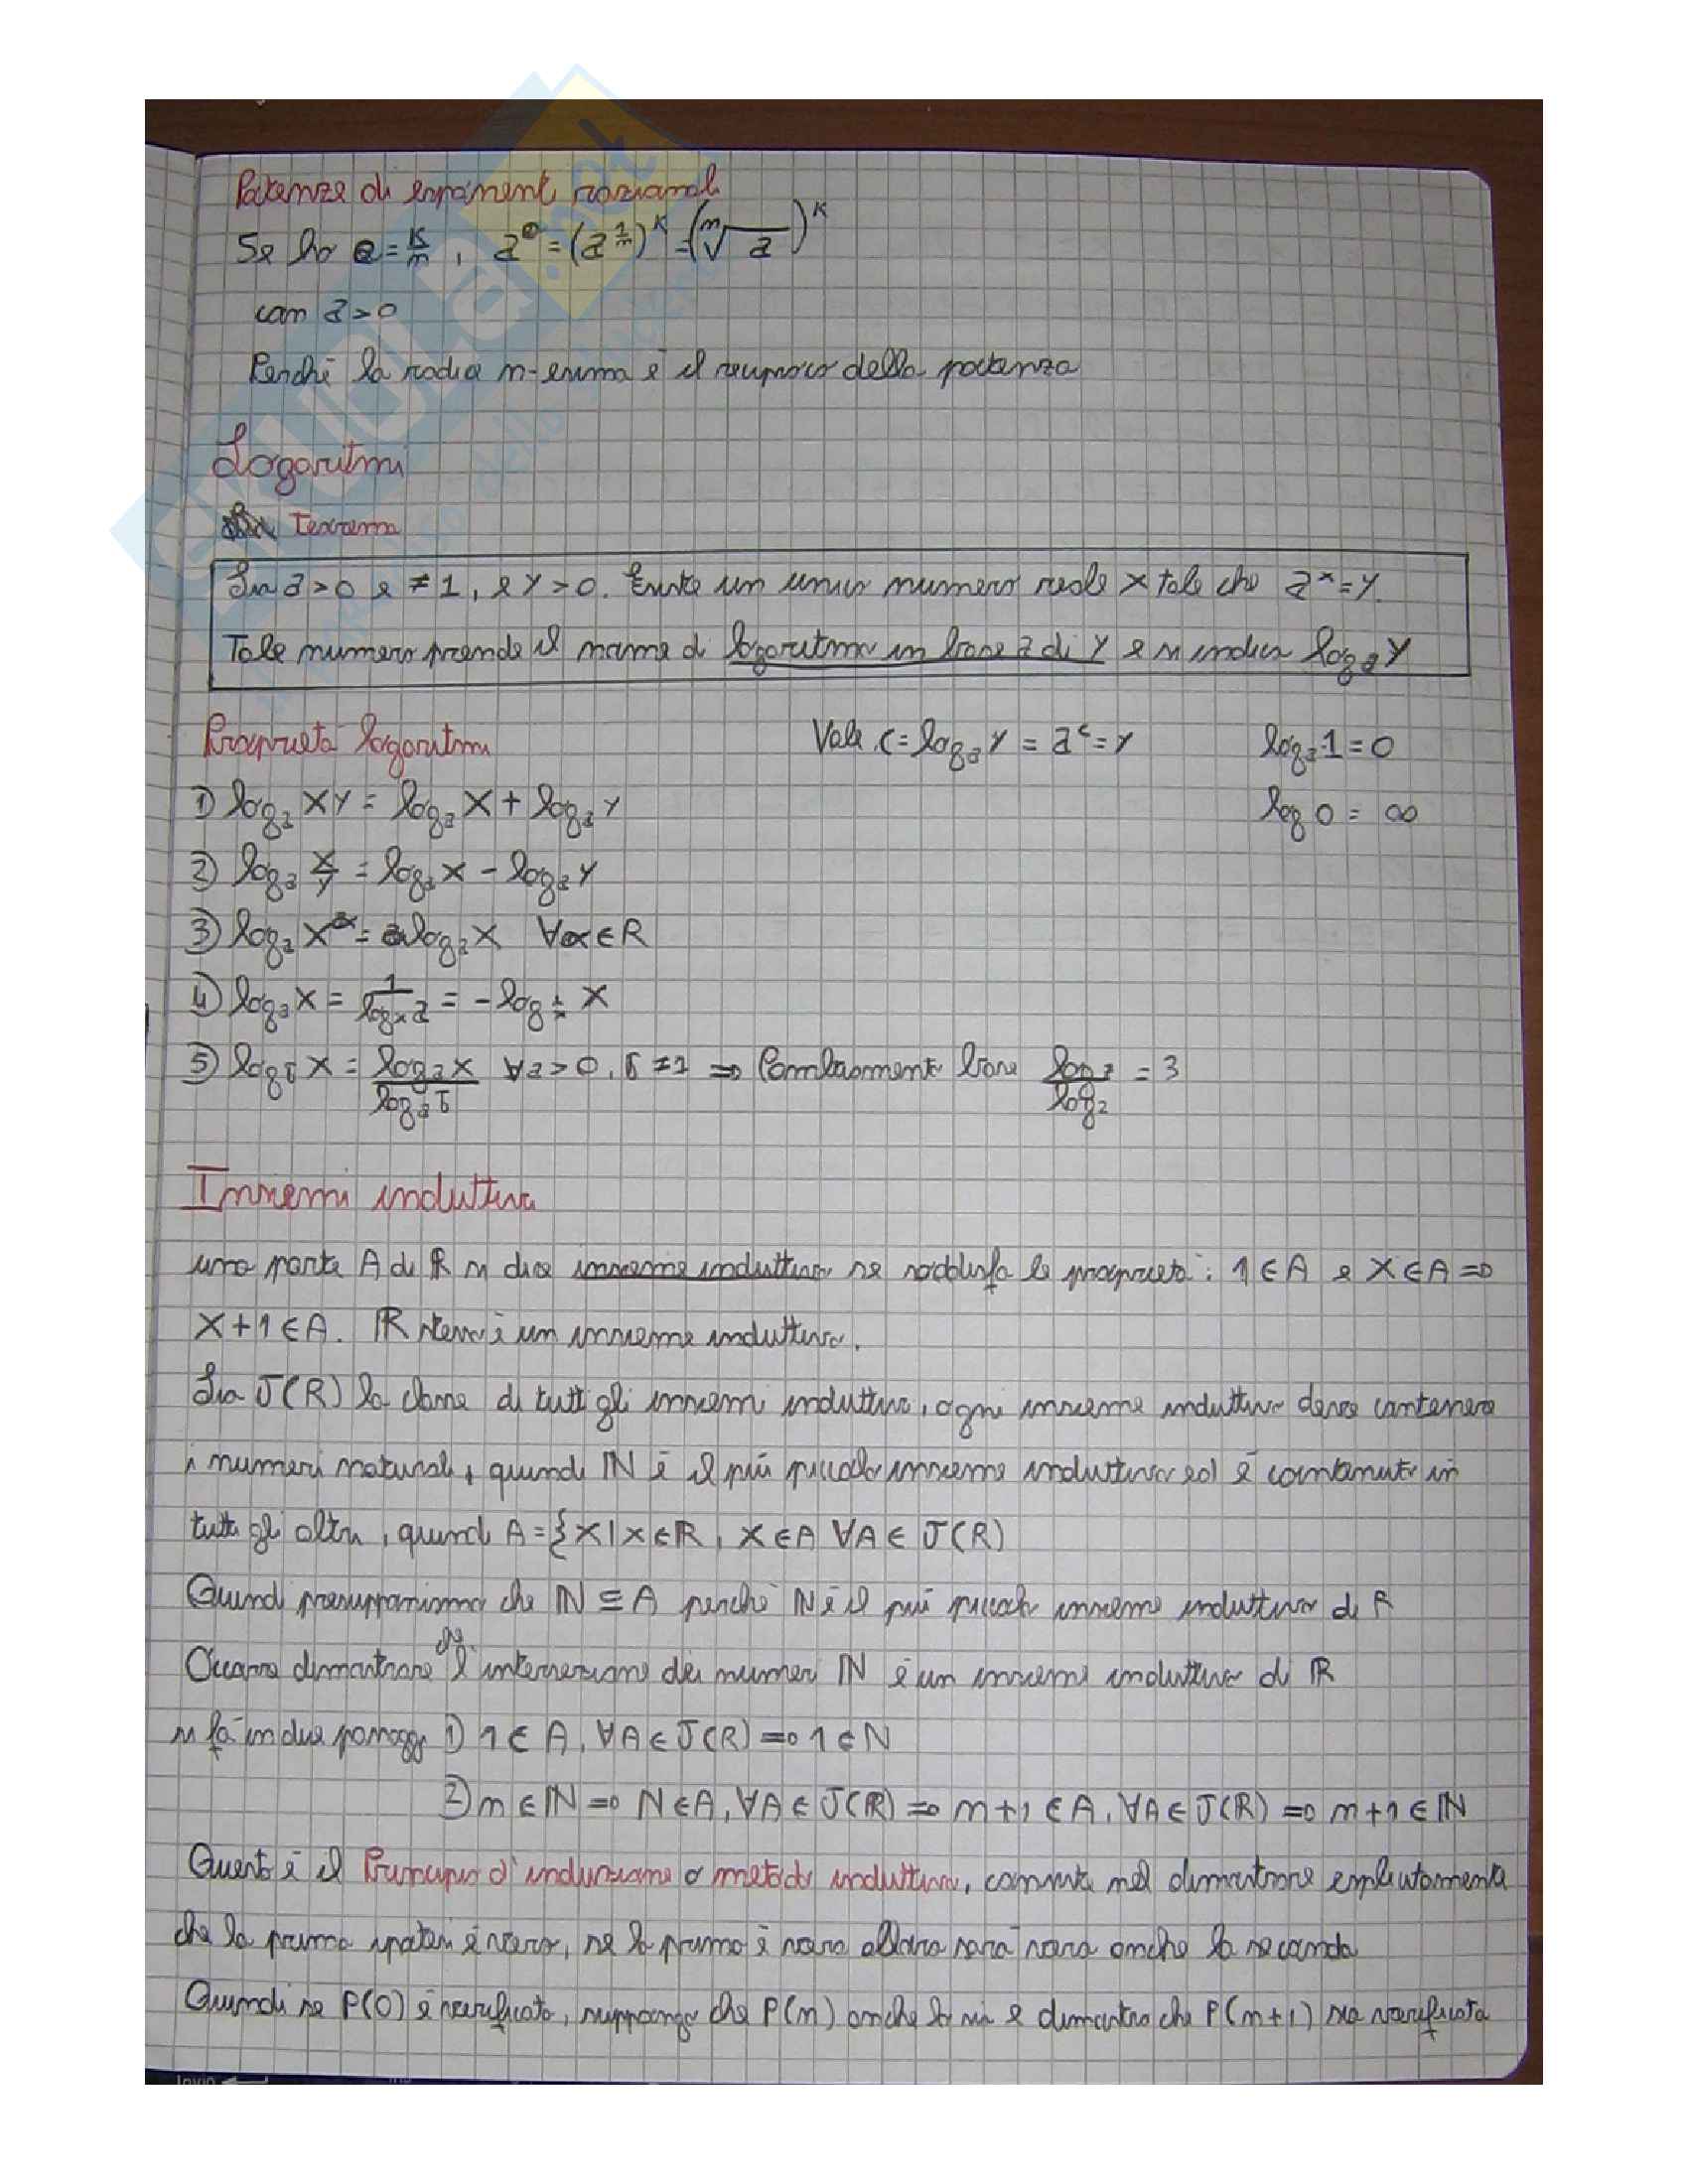 Potenze di esponenti razionali
Se ho e = k/m , a^e = (a^(1/m))^k = (ᵐ√a)^k
con a > 0
Perché la radice n-esima è il reciproco della potenza
Logaritmi
Teorema
Sia a > 0 e ≠ 1, e y > 0. Esiste un unico numero reale x tale che a^x = y.
Tale numero prende il nome di logaritmo in base a di y e si indica log_a y
Proprietà logaritmi Vale c = log_a y = a^c = y log_a 1 = 0
1) log_a xy = log_a x + log_a y log 0 = ∞
2) log_a x/y = log_a x - log_a y
3) log_a x^α = α log_a x ∀α ∈ R
4) log_a x = 1/log_x a = - log_(1/x) x
5) log_b x = log_a x / log_a b ∀a > 0, b ≠ 1 ⇒ Cambiamento base = 3
Insiemi induttivi
una parte A di ℝ si dice insieme induttivo se soddisfa le proprietà: 1 ∈ A e x ∈ A ⇒
x + 1 ∈ A. ℝ stesso è un insieme induttivo.
Sia J(R) la classe di tutti gli insiemi induttivi, ogni insieme induttivo deve contenere
i numeri naturali, quindi ℕ è il più piccolo insieme induttivo ed è contenuto in
tutti gli altri, quindi A = {x | x ∈ R, x ∈ A ∀A ∈ J(R)
Quindi presupponiamo che ℕ ⊆ A perché ℕ è il più piccolo insieme induttivo di R
Occorre dimostrare che l'intersezione dei numeri ℕ è un insieme induttivo di ℝ
si fà in due passaggi 1) 1 ∈ A, ∀A ∈ J(R) ⇒ 1 ∈ N
2) m ∈ ℕ ⇒ N ∈ A, ∀A ∈ J(ℝ) ⇒ m+1 ∈ A, ∀A ∈ J(R) ⇒ m+1 ∈ ℕ
Questo è il Principio d'induzione o metodo induttivo, consiste nel dimostrare esplicitamente
che la prima ipotesi è vera, se la prima è vera allora sarà vera anche la seconda
Quindi se P(0) è verificato, suppongo che P(m) anche lo sia e dimostro che P(m+1) sia verificata
Invio